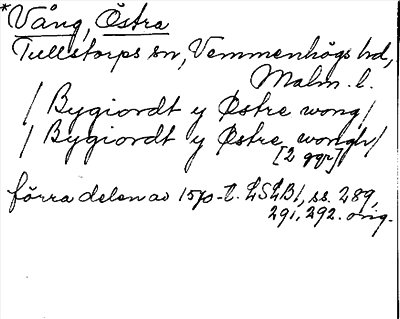 *Vång, Östra
Tullstorps sn, Vemmenhögs hd,
Malm. l.
/ Bygiordt y Østre wong/
/ Bygiordt y Østre wongh/
[2 ggr]
förra delen av 1570-t. LSLB1, ss. 289,
291, 292. orig.